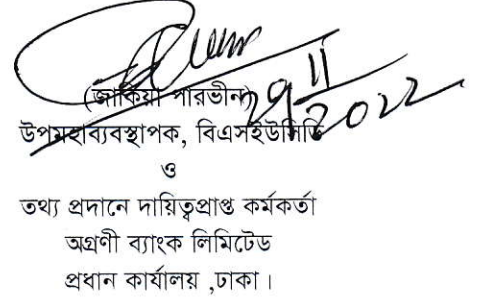 (জাকিয়া পারভীন)
উপমহাব্যবস্থাপক, বিএসইউসিডি
ও
তথ্য প্রদানে দায়িত্বপ্রাপ্ত কর্মকর্তা
অগ্রণী ব্যাংক লিমিটেড
প্রধান কার্যালয় ,ঢাকা।